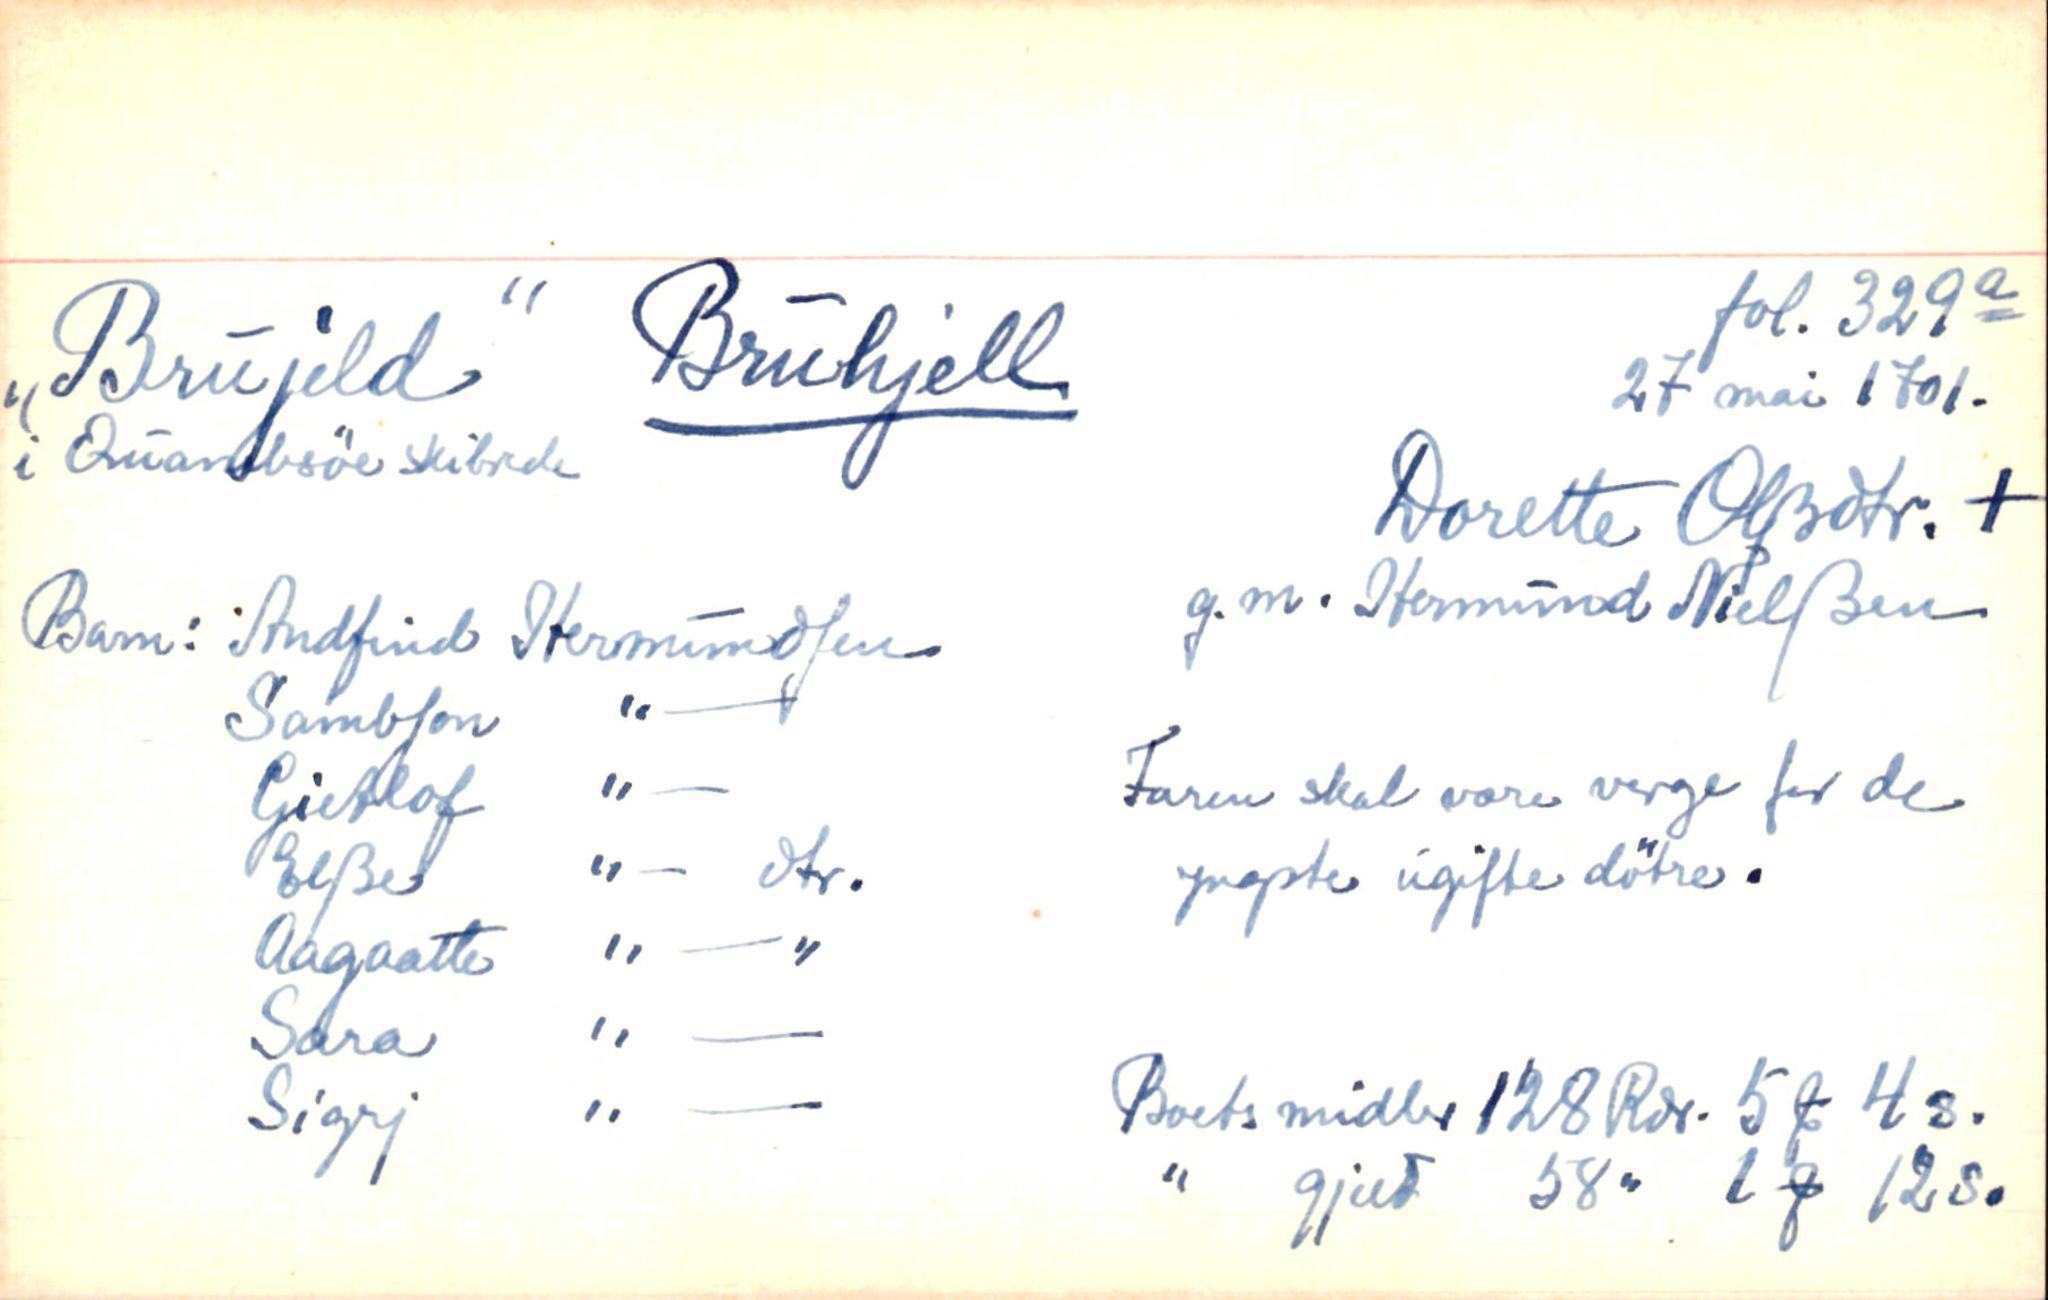 „Brujeld" Bruhjell
fol. 329a
27 mai 1701.
i Quambsöe skibrede
Dorette Olßdtr. +
g.m. Hermund Nielßen
Barn: Andfind Hermundsen
Sambson " —
Gietlof " —
Elße " — dtr.
Aagaatte " — "
Sara " —
Sigrj " —
Faren skal være verge for de
yngste ugifte dötre.
Boets midler 128 Rdr. 5 ƒ 4 s.
" gjeld 58 " 1 ƒ 12 s.